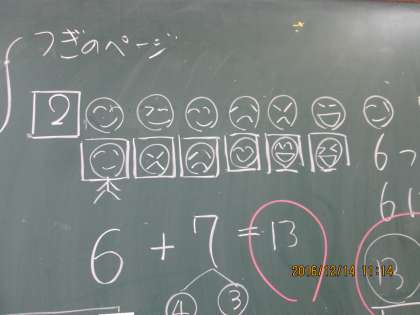 つぎのページ
2
6つ
6 + 7 = 13
4 3
13
2016/12/14 11:14